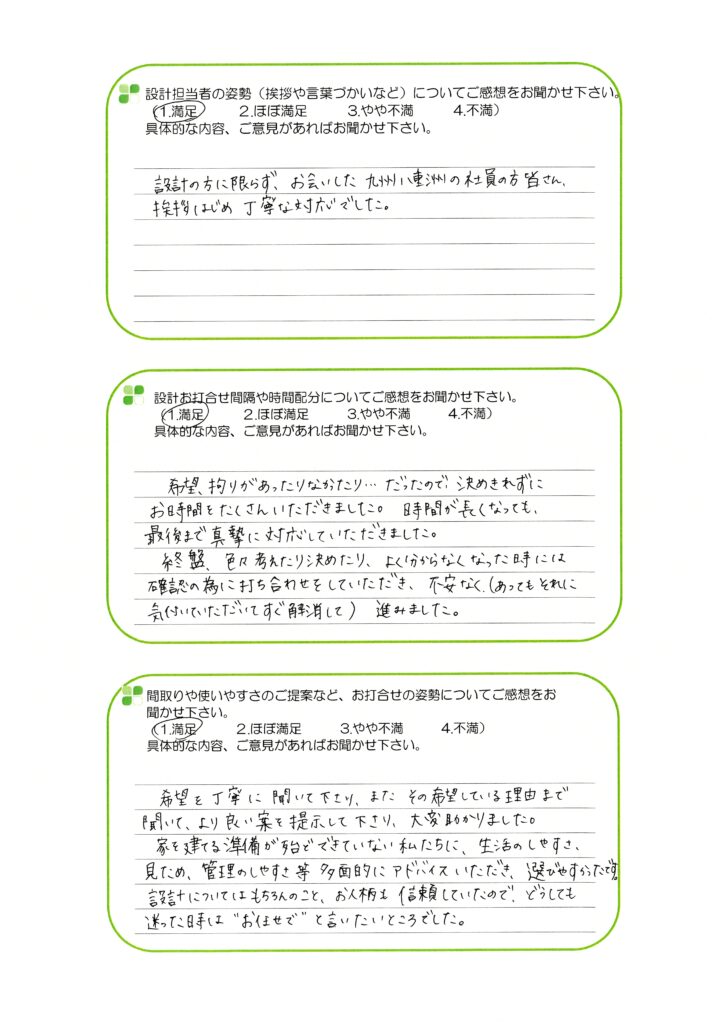 設計担当者の姿勢（挨拶や言葉づかいなど）についてご感想をお聞かせ下さい。
（1.満足　2.ほぼ満足　3.やや不満　4.不満）
具体的な内容、ご意見があればお聞かせ下さい。
設計の方に限らず、お会いした九州八重洲の社員の方皆さん、
挨拶はじめ丁寧な対応でした。
設計お打合せ間隔や時間配分についてご感想をお聞かせ下さい。
（1.満足　2.ほぼ満足　3.やや不満　4.不満）
具体的な内容、ご意見があればお聞かせ下さい。
希望、拘りがあったりなかったり…だったので、決めきれずに
お時間をたくさんいただきました。時間が長くなっても、
最後まで真摯に対応していただきました。
終盤、色々考えたり決めたり、よく分からなくなった時には
確認の為に打ち合わせをしていただき、不安なく、（あってもそれに
気付いていただいてすぐ解消して）進みました。
間取りや使いやすさのご提案など、お打合せの姿勢についてご感想をお
聞かせ下さい。
（1.満足　2.ほぼ満足　3.やや不満　4.不満）
具体的な内容、ご意見があればお聞かせ下さい。
希望を丁寧に聞いて下さり、またその希望している理由まで
聞いて、より良い案を提示して下さり、大変助かりました。
家を建てる準備が殆どできていない私たちに、生活のしやすさ、
見ため、管理のしやすさ等多面的にアドバイスいただき、選びやすかったです。
設計についてはもちろんのこと、お人柄も信頼していたので、どうしても
迷った時は“お任せで”と言いたいところでした。